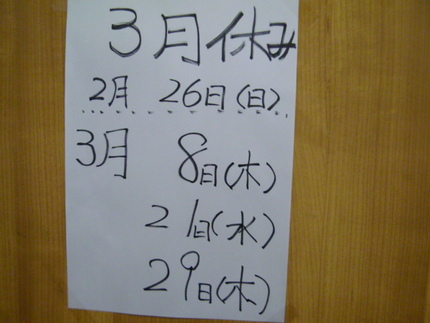 3月休み
2月 26日(日)
3月 8日(木)
21日(水)
29日(木)